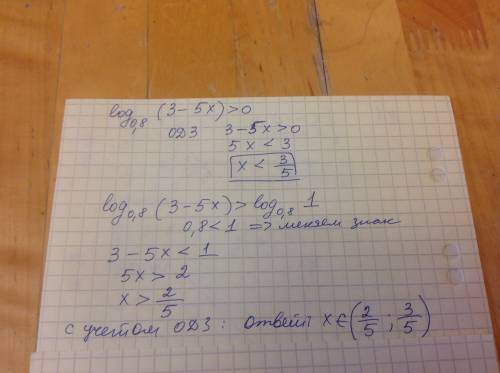 log₀,₈ (3-5x)>0
ОДЗ 3-5x>0
5x < 3
x < 3/5
log₀,₈ (3-5x) > log₀,₈ 1
0,8<1 => меняем знак
3-5x < 1
5x > 2
x > 2/5
с учетом ОДЗ: ответ x∈(2/5 ; 3/5)